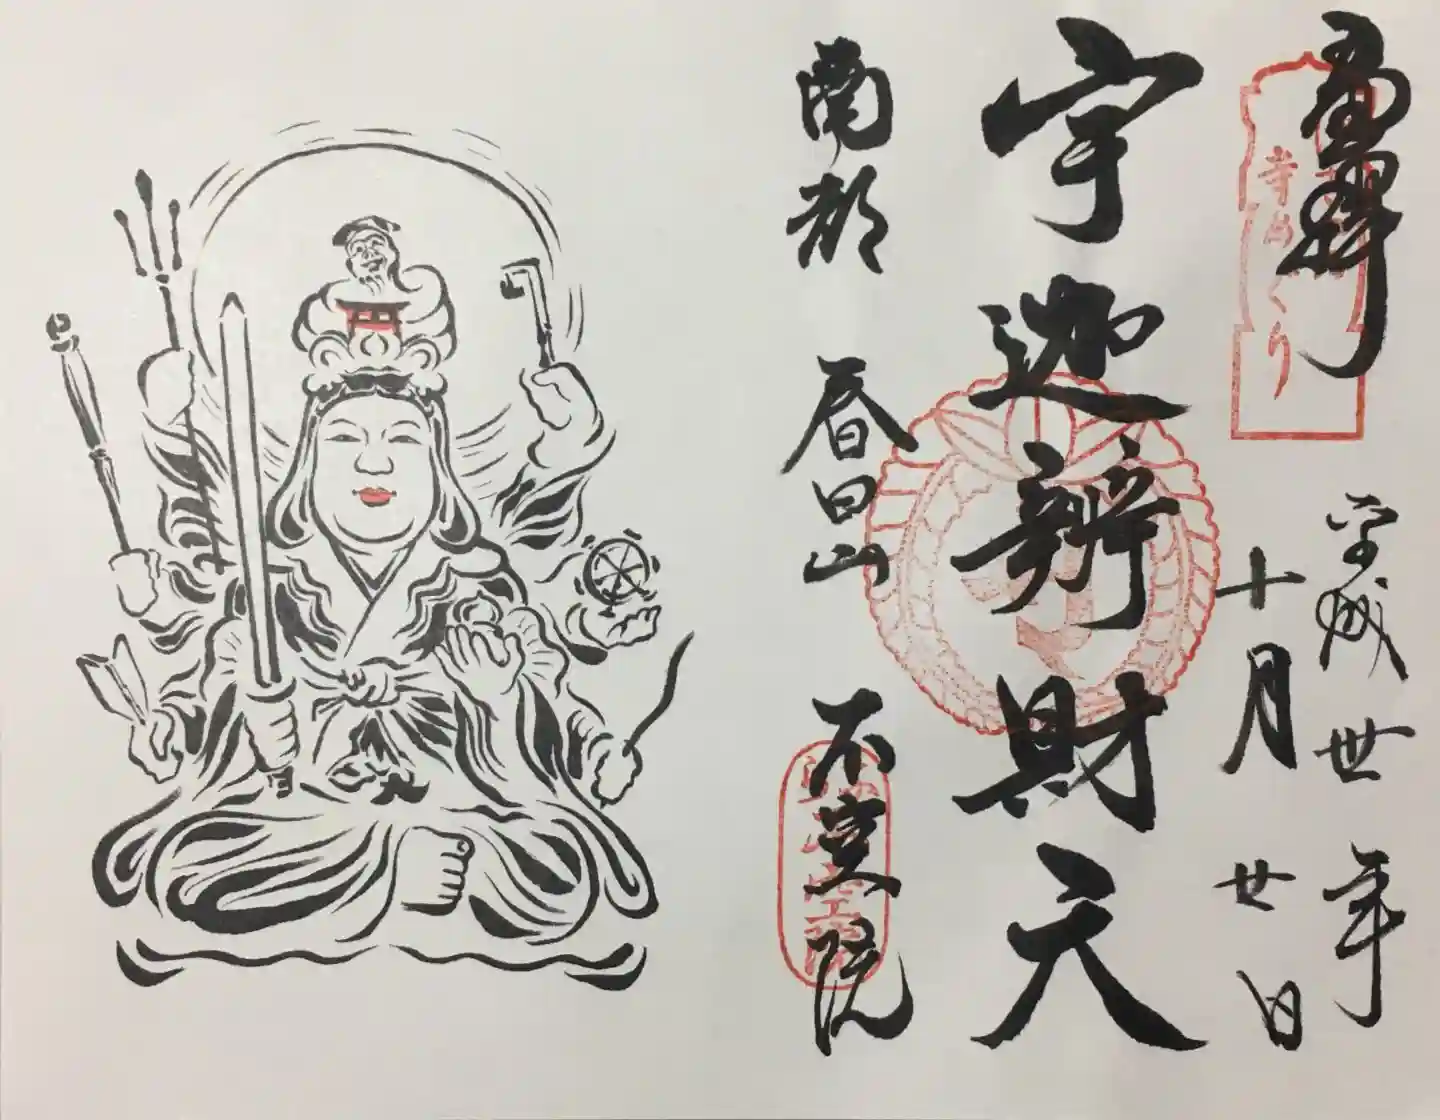 奉拝
寺めぐり
平成丗年
十月廿日
宇迦辨財天
南都 春日山 不空院